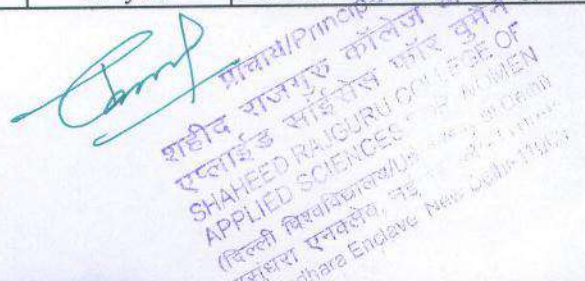 प्राचार्य/Principal
शहीद राजगुरु कॉलेज
एप्लाईड साईंसेस फॉर वुमेन
SHAHEED RAJGURU COLLEGE OF
APPLIED SCIENCES FOR WOMEN
(दिल्ली विश्वविद्यालय/University of Delhi)
वसुंधरा एनक्लेव, नई
Enclave New Delhi-110096